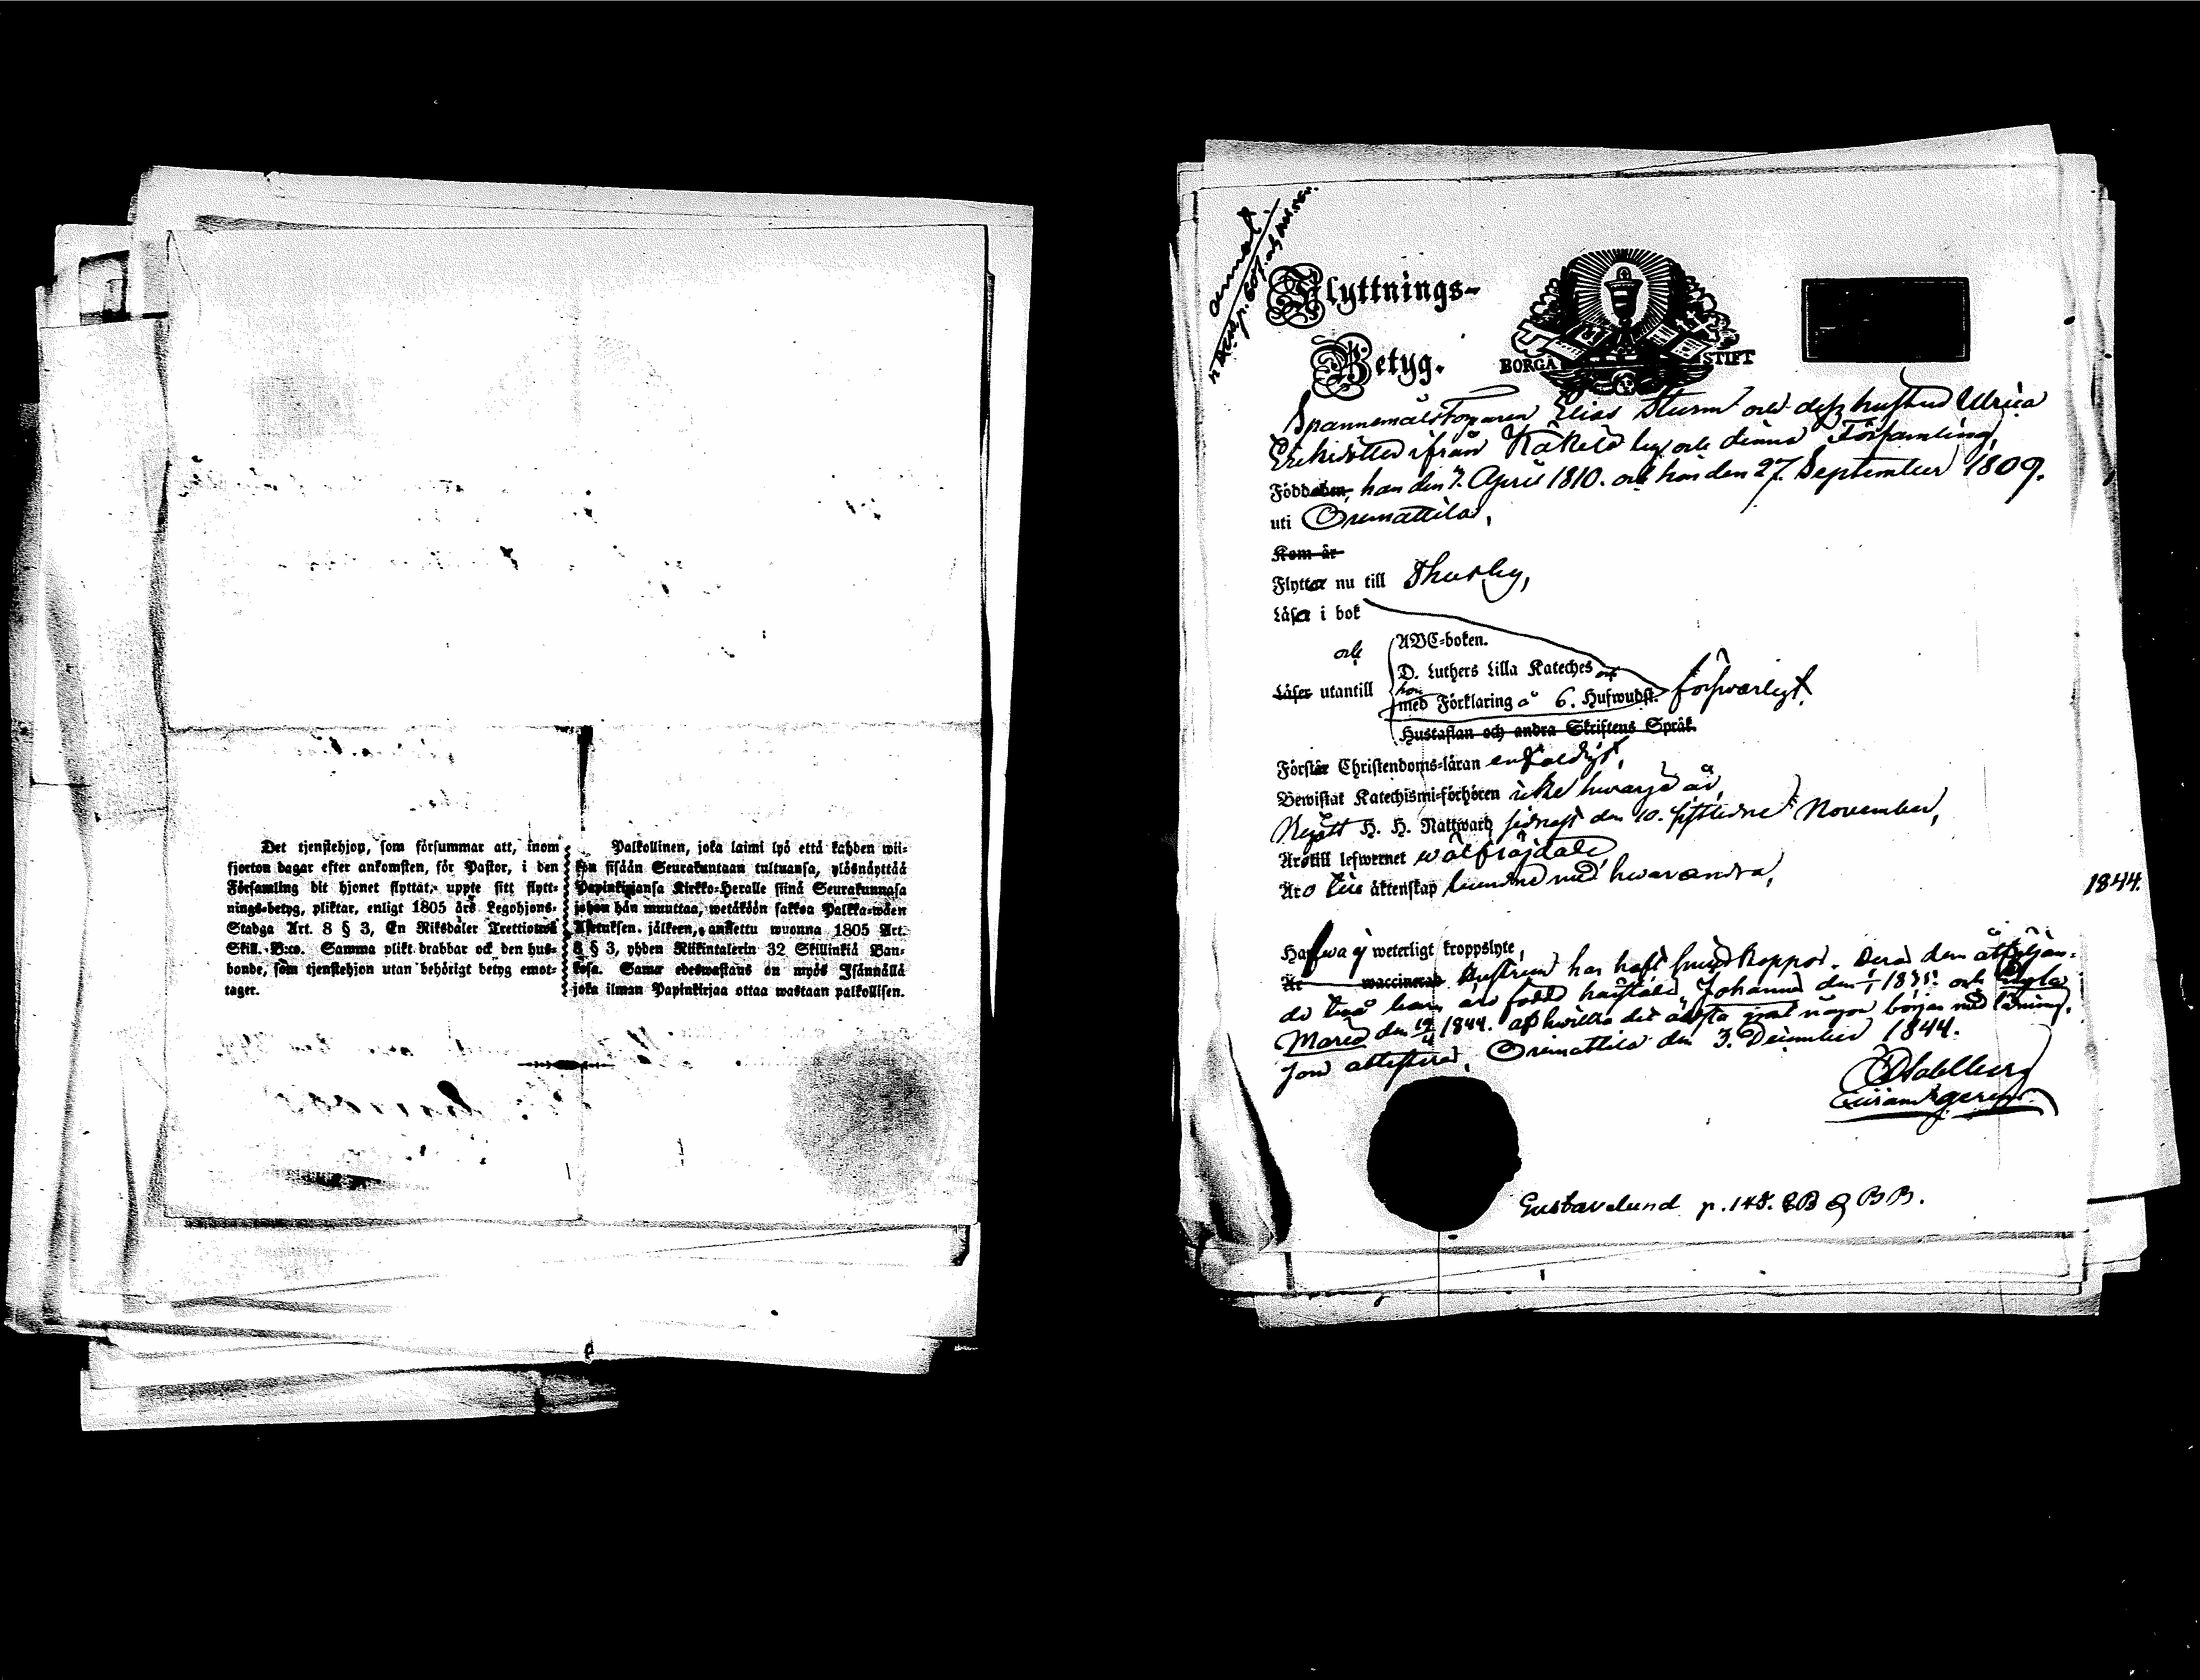 Det tjenstehjon, som försummar att, inom
fjorton dagar efter ankomsten, för Pastor, i den
Församling dit hjonet flyttat, uppte sitt flytt-
nings-betyg, pliktar, enligt 1805 års Legohjons-
Stadga Art. 8 § 3, En Riksdaler Trettiotwå
Skill. B:co. Samma plikt drabbar ock den hus-
bonde, som tjenstehjon utan behörigt betyg emot-
tager.
Palkollinen, joka laimi lyö että kahden wii-
kon sisään Seurakuntaan tultuansa, ylösnäyttää
Papinkirjansa Kirkko-Heralle siinä Seurakunnasa
johon hän muuttaa, wetäköön sakkoa Palkka-wäen
Asetuksen jälkeen, annettu wuonna 1805 Art.
8 § 3, yhden Riikintalerin 32 Skillinkiä Ban-
kosa. Sama edeswastaus on myös Isännällä
joka ilman Papinkirjaa ottaa wastaan palkollisen.
Flyttnings-
Betyg.
BORGÅ STIFT
Elias Sturm och dess hustru Ulrica
Ericsdotter ifrån Käkelä by och denna Församling,
Födde han den 7. April 1810. och hon den 27. September 1809.
uti Orimattila,
Kom år
Flytta nu till Thusby,
Läsa i bok
och
ABC-boken.
D. Luthers Lilla Kateches
Läser utantill
hon
med Förklaring å 6. Hufwudst. försvarligt.
Hustaflan och andra Skriftens Språk.
Förstå Christendoms-läran enfaldigt,
Bewistat Katechismi-förhören icke hwarje år,
Begått H. H. Nattward sednast den 10. sistledne November,
Äro till lefwernet wälfräjdade
Äro till äktenskap bundne med hwarandra,
1844.
Hafwa ej weterligt kroppslyte,
Är waccinerad Hustrun har haft koppor. Deras dem åtföljan-
de två barn äro födde Johanna den 1835. och
Maria den 1844. af hwilka det äldsta
som attesteras. Orimattila den 3. December 1844.
Gustavelund p. 148. BB